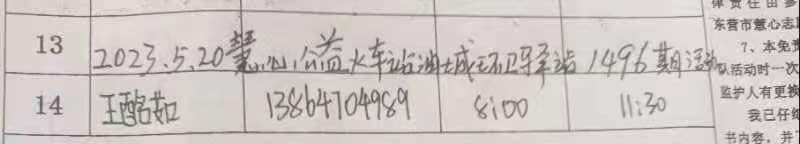 13 2023.5.20慧心公益火车站油城环卫驿站1496期活动
14 王酩茹 13864704989 8:00 11:30
律责任由参
东营市慧心志愿
7、本免责
队活动时一次
监护人有更换
我已仔细
书内容，并